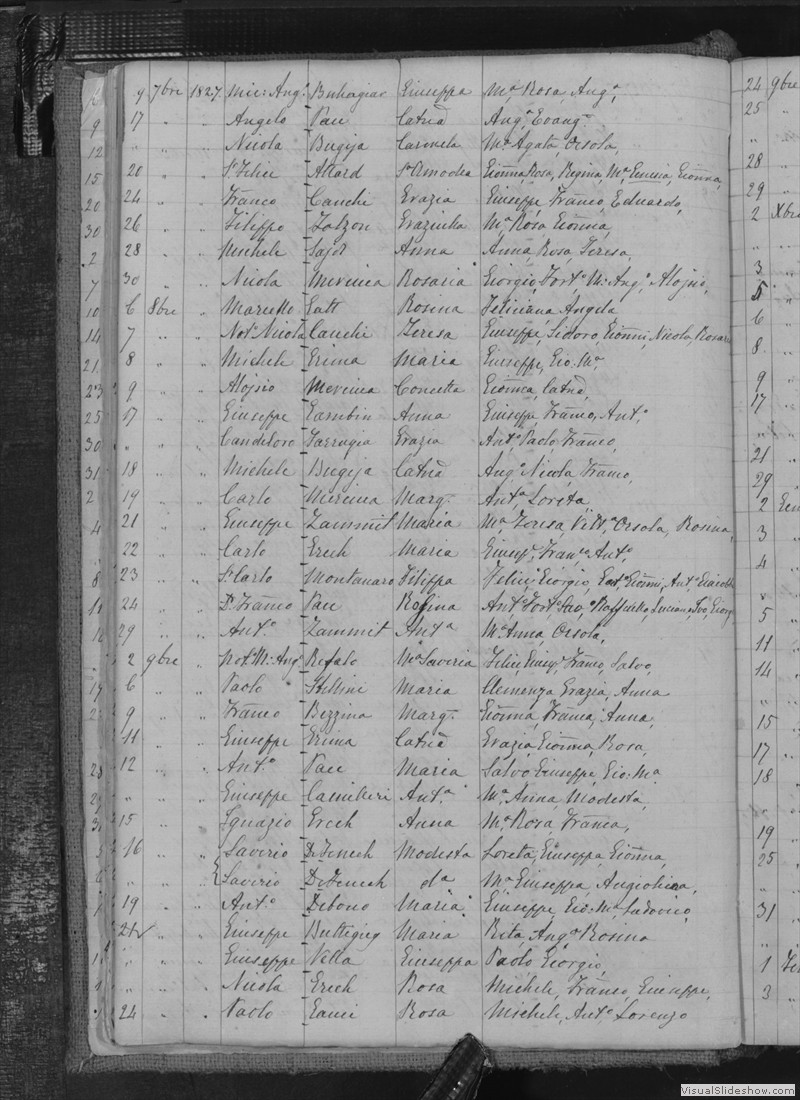 9 7bre 1827. Mic: Ang.º Buhagiar Giuseppa Mª Rosa, Angª,
17 „ „ Angelo Pace Catrª Angª, Evangª
„ „ „ Nicola Bugeja Carmela Mª Agata, Orsola,
20 „ „ Attard Giovña, Rosa, Regina, Mª Giovña,
24 „ „ Franco Cauchi Grazia Giuseppe, Franco, Eduardo,
26 „ „ Filippo Falzon Graziulla Mª Rosa Giovña,
28 „ „ Michele Anna Anna, Rosa, Teresa,
30 „ „ Nicola Mercieca Rosaria Giorgio, Fortº Mic: Angº, Aloisio,
6 8bre „ Marcello Gatt Rosina Feliciana Angela
7 „ „ Notº Nicola Cauchi Teresa Giuseppe, Isidoro, Giovñi, Nicola, Rosario
8 „ „ Michele Grima Maria Giuseppe, Gio: Mª,
9 „ „ Aloisio Mercieca Concetta Giovñca, Catrª,
17 „ „ Giuseppe Gambin Anna Giuseppe, Franco, Antº,
„ „ „ Candeloro Farrugia Grazia Antº Paolo, Franco,
18 „ „ Michele Bugeja Catrª Angº Nicola, Franco,
19 „ „ Carlo Mercieca Marg.ª Antª, Loreta,
21 „ „ Giuseppe Zammit Maria Mª Teresa, Vittª, Orsola, Rosina,
22 „ „ Carlo Grech Maria Giusepº, Francº, Antº,
23 „ „ Carlo Montanaro Filippa Felice, Giorgio, Giovñi, Antº
24 „ „ Dr. Franco Pace Rosina Antº Fortº Raffaele, Luciano, Ivo, Giorgº
29 „ „ Antº Zammit Antª Mª Anna, Orsola,
2 9bre „ Notº M: Angº Refalo Mª Saveria Felice, Giusepº, Franco, Salvo,
6 „ „ Paolo Stellini Maria Clemenza, Grazia, Anna
9 „ „ Franco Bezzina Marg.ª Giovña, Franca, Anna,
11 „ „ Giuseppe Grima Catrª Grazia, Giovña, Rosa,
12 „ „ Antº Pace Maria Salvo, Giuseppe, Gio: Mª
„ „ „ Giuseppe Camilleri Antª Mª Anna, Modesta,
15 „ „ Ignazio Grech Anna Mª Rosa, Franca,
16 „ „ Saverio DeZenech Modesta Loreta, Giuseppa, Giovña,
„ „ Saverio DeZenech dª Mª Giuseppa, Angiolina,
19 „ „ Antº Debono Maria Giuseppe, Gio: Mª, Ludovico,
21 „ „ Giuseppe Buttigieg Maria Rita, Angª Rosina
„ „ „ Giuseppe Vella Giuseppa Paolo Giorgio,
„ „ „ Nicola Grech Rosa Michele, Franco, Giuseppe,
24 „ „ Paolo Gauci Rosa Michele, Antº, Lorenzo
24 9bre
25
„
28
29
2 Xbre
„
3
5
6
8
9
17
„
21
29
2
3
4
„
5
11
14
„
15
17
18
„
19
25
„
31
„
1
3
VisualSlideshow.com